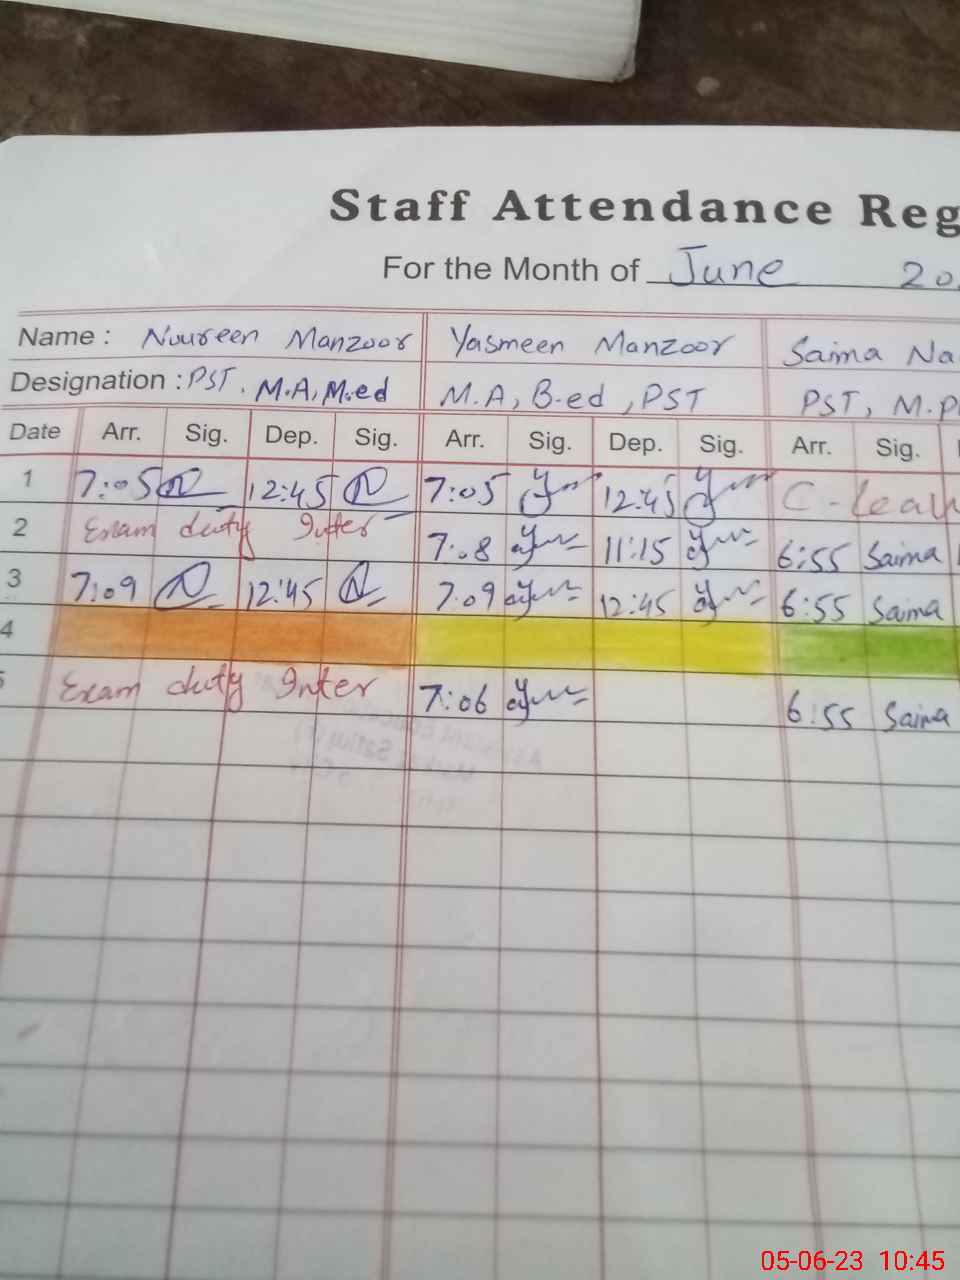 Staff Attendance Reg
For the Month of June 20
Name : Noureen Manzoor Yasmeen Manzoor Saima Na
Designation : PST. M.A, M.ed M.A, B-ed, PST PST, M.P
Date Arr. Sig. Dep. Sig. Arr. Sig. Dep. Sig. Arr. Sig.
1 7:05 12:45 7:05 12:45 C-Leav
2 Exam duty Inter 7:08 11:15 6:55 Saima
3 7:09 12:45 7:09 12:45 6:55 Saima
4
5 Exam duty Inter 7:06 6:55 Saima
05-06-23 10:45